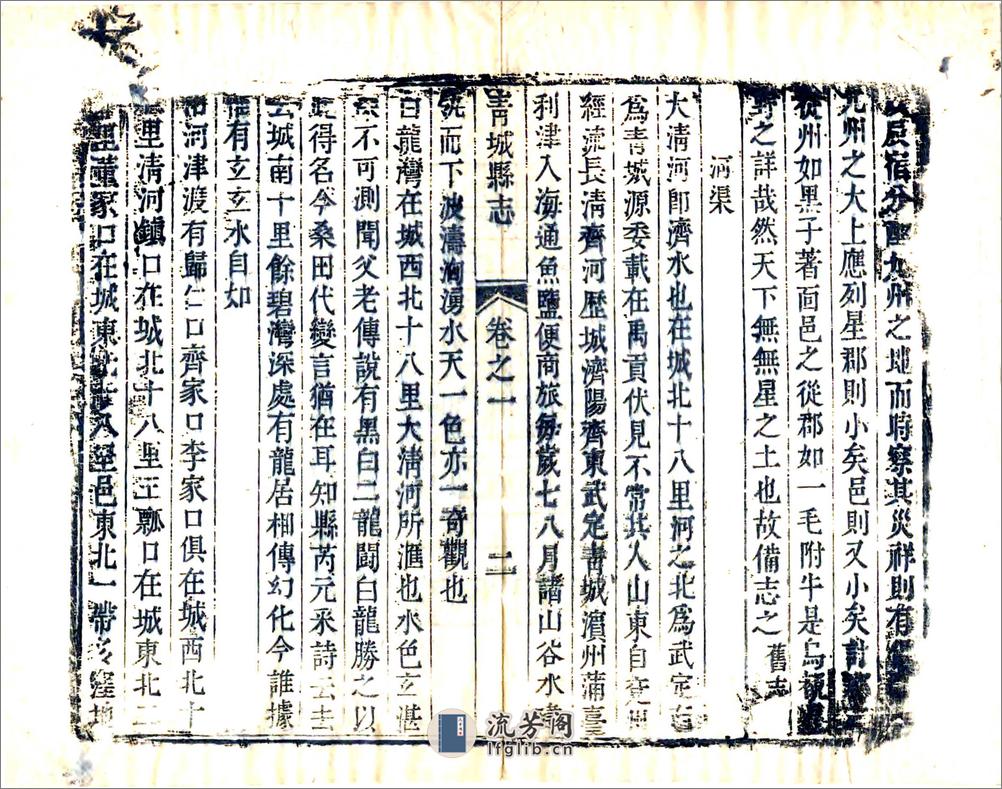 辰宿分配九州之地而時察其災祥則有
九州之大上應列星郡則小矣邑則又小矣計
從州如黑子著面邑之從郡如一毛附牛是烏
野之詳哉然天下無無星之土也故備志之 舊志
河渠
大清河即濟水也在城北十八里河之北為武定
為青城源委載在禹貢伏見不常其入山東自
經流長清齊河歷城濟陽齊東武定青城濱州蒲臺
利津入海通魚鹽便商旅每歲七八月諸山谷水
青城縣志 卷之一 二
而下波濤洶湧水天一色亦一奇觀也
白龍灣在城西北十八里大清河所滙也水色玄湛
不可測聞父老傳說有黑白二龍鬪白龍勝之以
得名今桑田代變言猶在耳知縣芮元采詩云
去城南十里餘碧灣深處有龍居相傳幻化今誰據
惟有玄玄水自如
河津渡有歸仁口齊家口李家口俱在城西北十
里清河鎮口在城北十八里王瓢口在城東北二
里董家口在城東北八里邑東北一帶多窪地
流芳阁
lfglib.cn